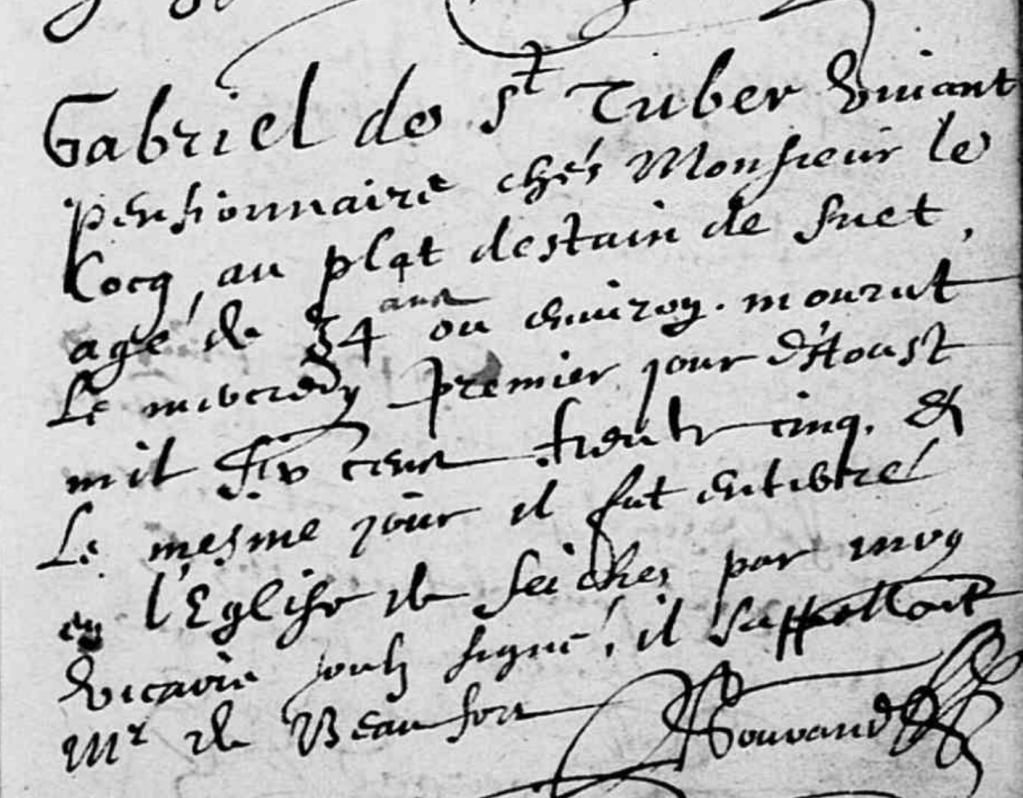 Gabriel de St Tuber vivant
pensionnaire chés Monsieur le
Cocq, au plat destain de Suet,
agé de 34 ans ou environ. mourut
Le mercredy premier jour d'Aoust
mil six cens trente cinq. &
Le mesme jour il fut enterré
en l'Eglise de Seiches par moy
vicaire soubs signé, il s'appelloit
Mr de Beaufort